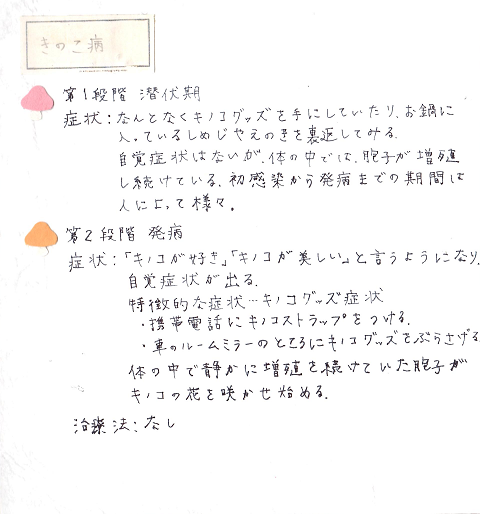 きのこ病
第1段階 潜伏期
症状:なんとなくキノコグッズを手にしていたり、お鍋に
入っているしめじやえのきを裏返してみる。
自覚症状はないが、体の中では、胞子が増殖
し続けている。初感染から発病までの期間は
人によって様々。
第2段階 発病
症状:「キノコが好き」「キノコが美しい」と言うようになり、
自覚症状が出る。
特徴的な症状…キノコグッズ症状
・携帯電話にキノコストラップをつける。
・車のルームミラーのところにキノコグッズをぶらさげる。
体の中で静かに増殖を続けていた胞子が
キノコの花を咲かせ始める。
治療法:なし